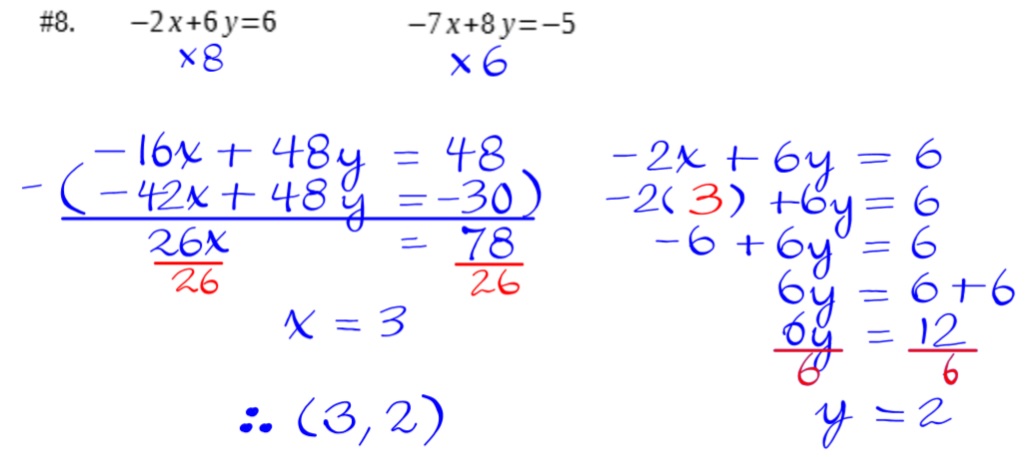 #8. −2x+6y=6 −7x+8y=−5
×8 ×6
−16x + 48y = 48
−(−42x + 48y = −30)
26x = 78
26 26
x = 3
∴ (3, 2)
−2x + 6y = 6
−2(3) + 6y = 6
−6 + 6y = 6
6y = 6 + 6
6y = 12
6 6
y = 2